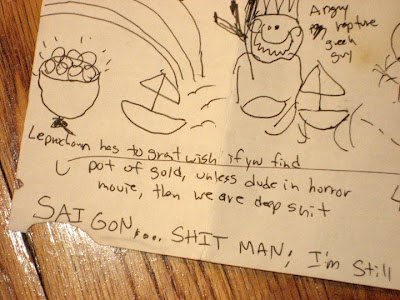 Angry
rapture
geek
guy
Leprachaun has to grat wish if you find
pot of gold, unless dude in horror
movie, then we are deep shit
SAIGON.... SHIT MAN; I'm still